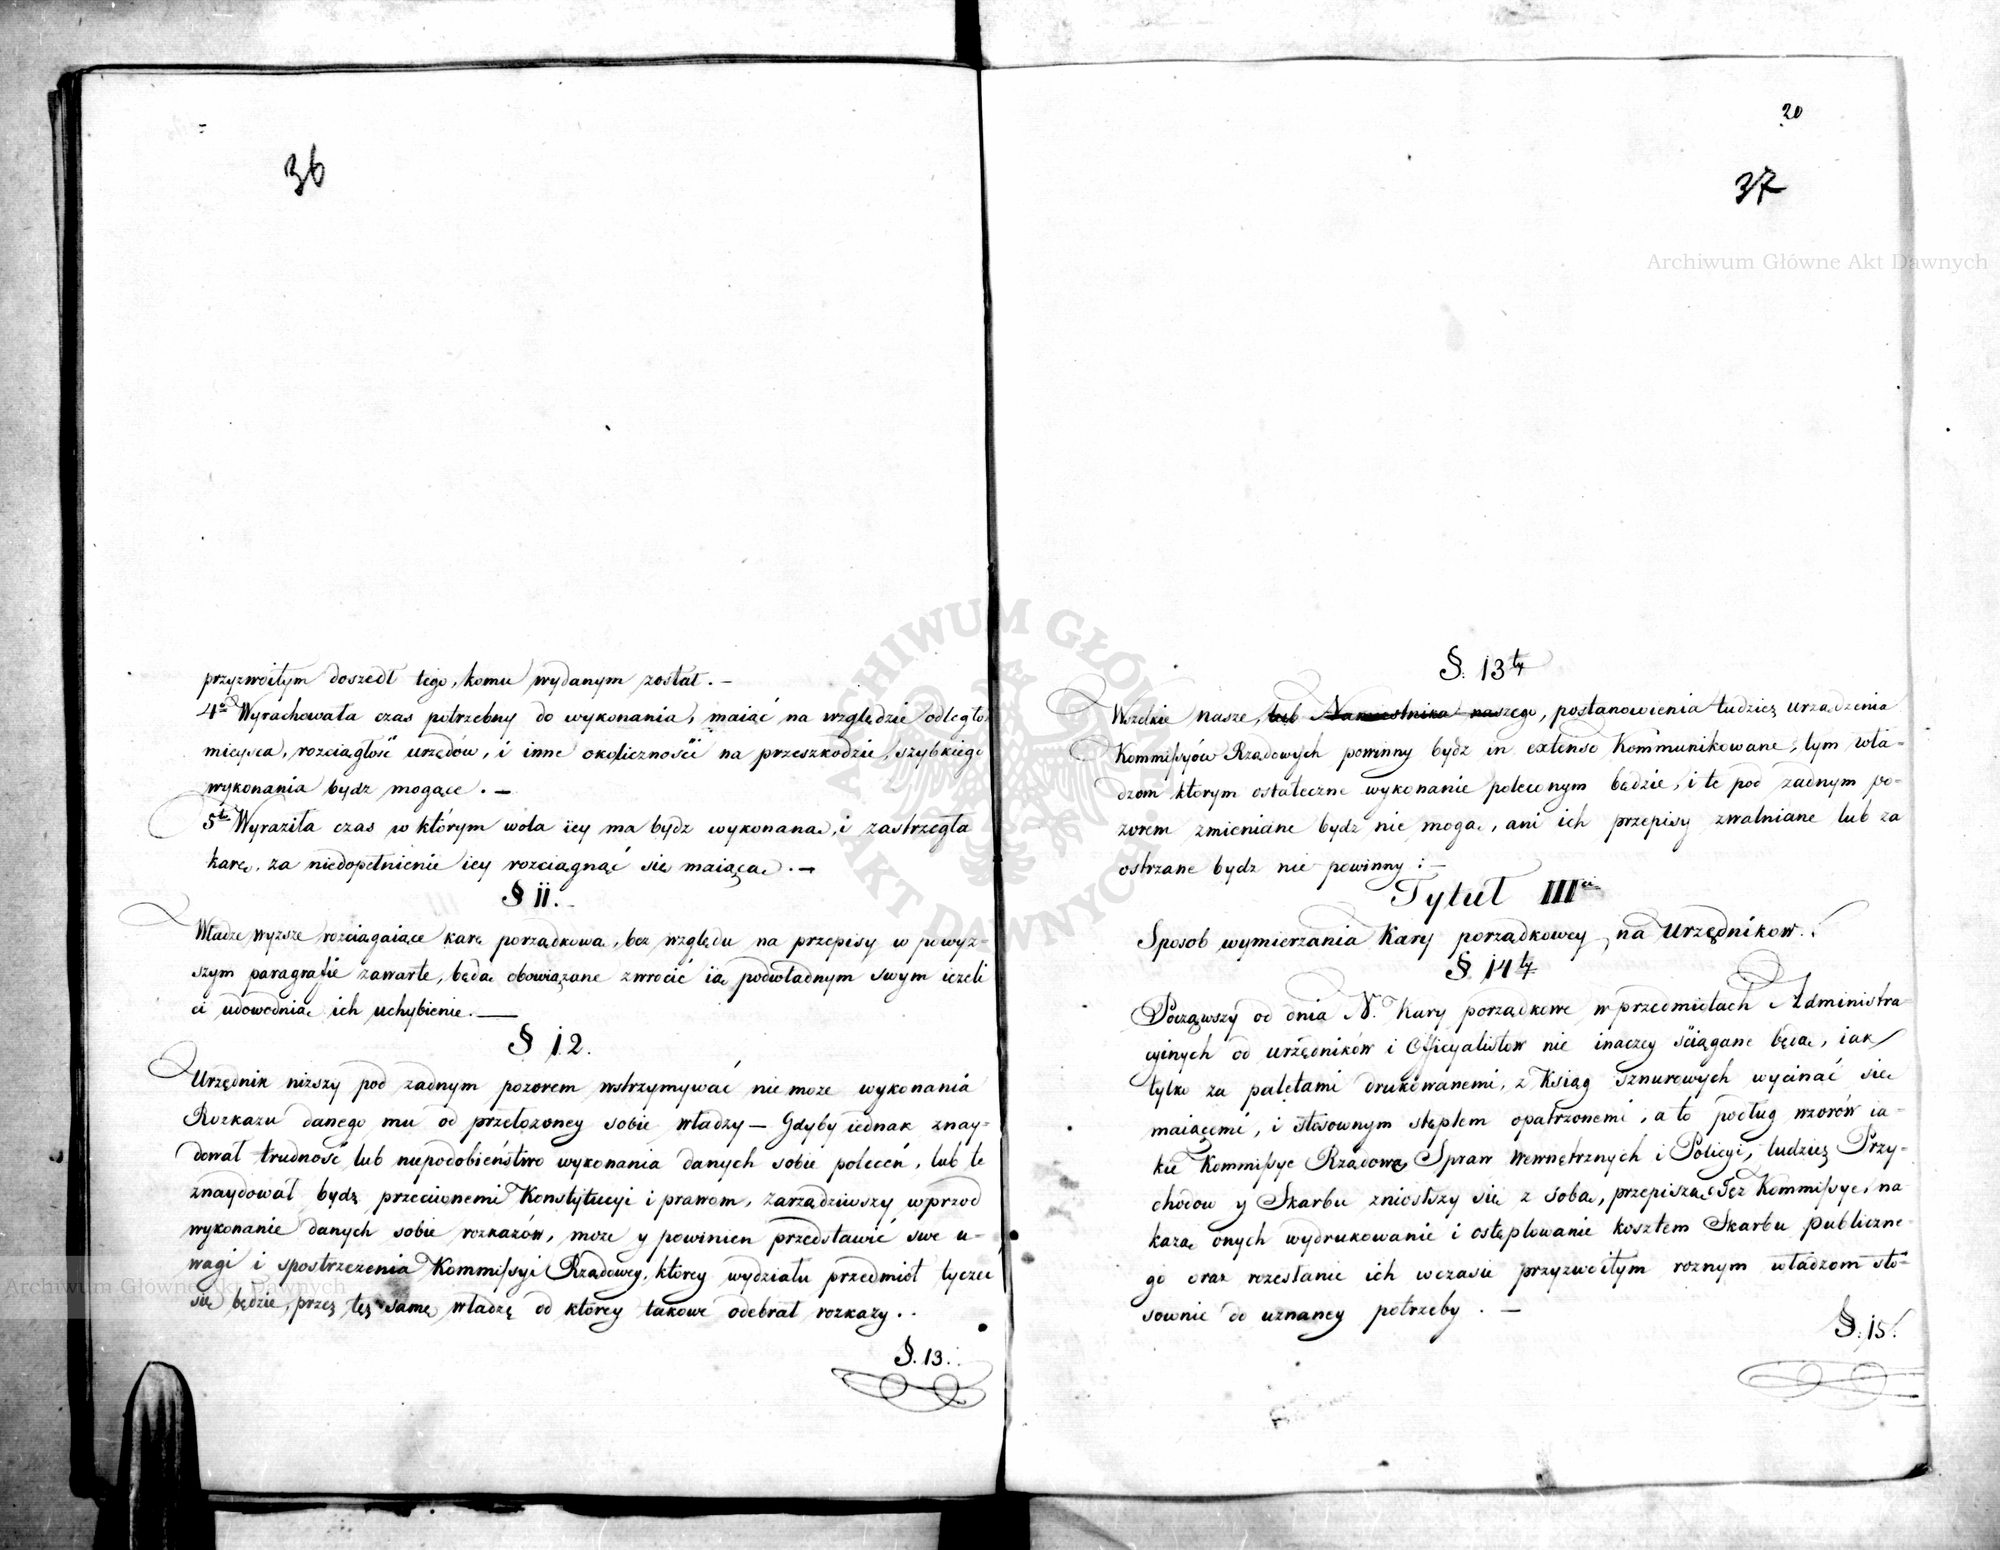 36
przyzwoitym doszedł tego, komu wydanym został. —
4to Wyrachowała czas potrzebny do wykonania, maiąc na względzie odległo
mieysca, rozciągłość urzędów, i inne okoliczności na przeszkodzie, szybkiego
wykonania bydz mogące. —
5te Wyraziła czas w którym wola iey ma bydz wykonana, i zastrzegła
karę, za niedopełnienie iey rozciągnąć się maiącą. —
§ 11. —
Władze wyzsze rozciągaiące karę porządkową, bez względu na przepisy w powyz-
szym paragrafie zawarte, będą obowiązane zwrocić ią podwładnym swym iezeli
ci udowodnią ich uchybienie. —
§ 12.
Urzędnik nizszy pod zadnym pozorem wstrzymywać nie moze wykonania
Rozkazu danego mu od przełozoney sobie władzy — Gdyby iednak znay-
dował trudność lub niepodobieństwo wykonania danych sobie poleceń, lub te
znaydował bydz przeciwnemi Konstytucyi i prawom, zarządziwszy wprzod
wykonanie danych sobie rozkazów, moze y powinien przedstawić swe u-
wagi i spostrzezenia Kommissyi Rządowey, ktorey wydziału przedmiot tyczeć
się będzie, przez tęz samę władzę od ktorey takowe odebrał rozkazy. .
§. 13.
20
37
Archiwum Główne Akt Dawnych
§. 13ty
Wszelkie nasze, lub Namiestnika naszego, postanowienia tudziez urządzenia
Kommissyów Rządowych powinny bydz in extenso Kommunikowane, tym wła-
dzom ktorym ostateczne wykonanie poleconym będzie, i te pod zadnym po-
zorem zmieniane bydz nie mogą, ani ich przepisy zwalniane lub za
ostrzane bydz nie powinny : —
Tytuł IIIci
Sposob wymierzania Kary porządkowey, na Urzędnikow. .
§. 14ty
Począwszy od dnia N. Kary porządkowe w przedmiotach Administra-
cyinych od urzędników i Officyalistow nie inaczey ściągane będą, iak
tylko za paletami drukowanemi, z Ksiąg sznurowych wycinać się
maiącemi, i stosownym stęplem opatrzonemi, a to podług wzorów ia-
kie Kommissye Rządowe Spraw Wewnętrznych i Policyi, tudziez Przy-
chodow y Skarbu zniosłszy się z sobą, przepiszą Tez Kommissye, na
kazą onych wydrukowanie i ostęplowanie kosztem Skarbu publiczne-
go oraz rozesłanie ich wczasie przyzwoitym roznym władzom sto-
sownie do uznaney potrzeby. —
§. 15.
ARCHIWUM GŁÓWNE AKT DAWNYCH
Archiwum Główne Akt Dawnych